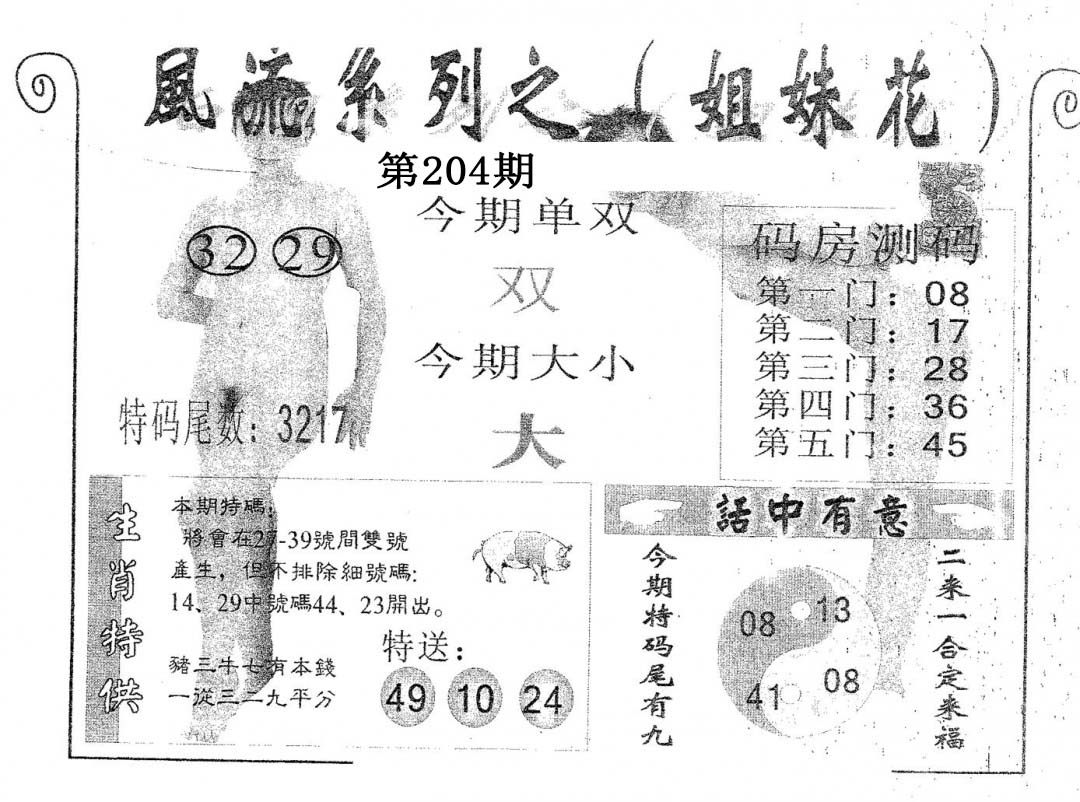 風流系列之（姐妹花）
第204期
今期单双
双
今期大小
大
32 29
特码尾数：3217
码房测码
第一门：08
第二门：17
第三门：28
第四门：36
第五门：45
生肖特供
本期特碼：
將會在27-39號間雙號
產生，但不排除細號碼:
14、29中號碼44、23開出。
豬三牛七有本錢
一從三二九平分
特送：
49 10 24
話中有意
今期特码尾有九
08 13
41 08
二来一合定来福